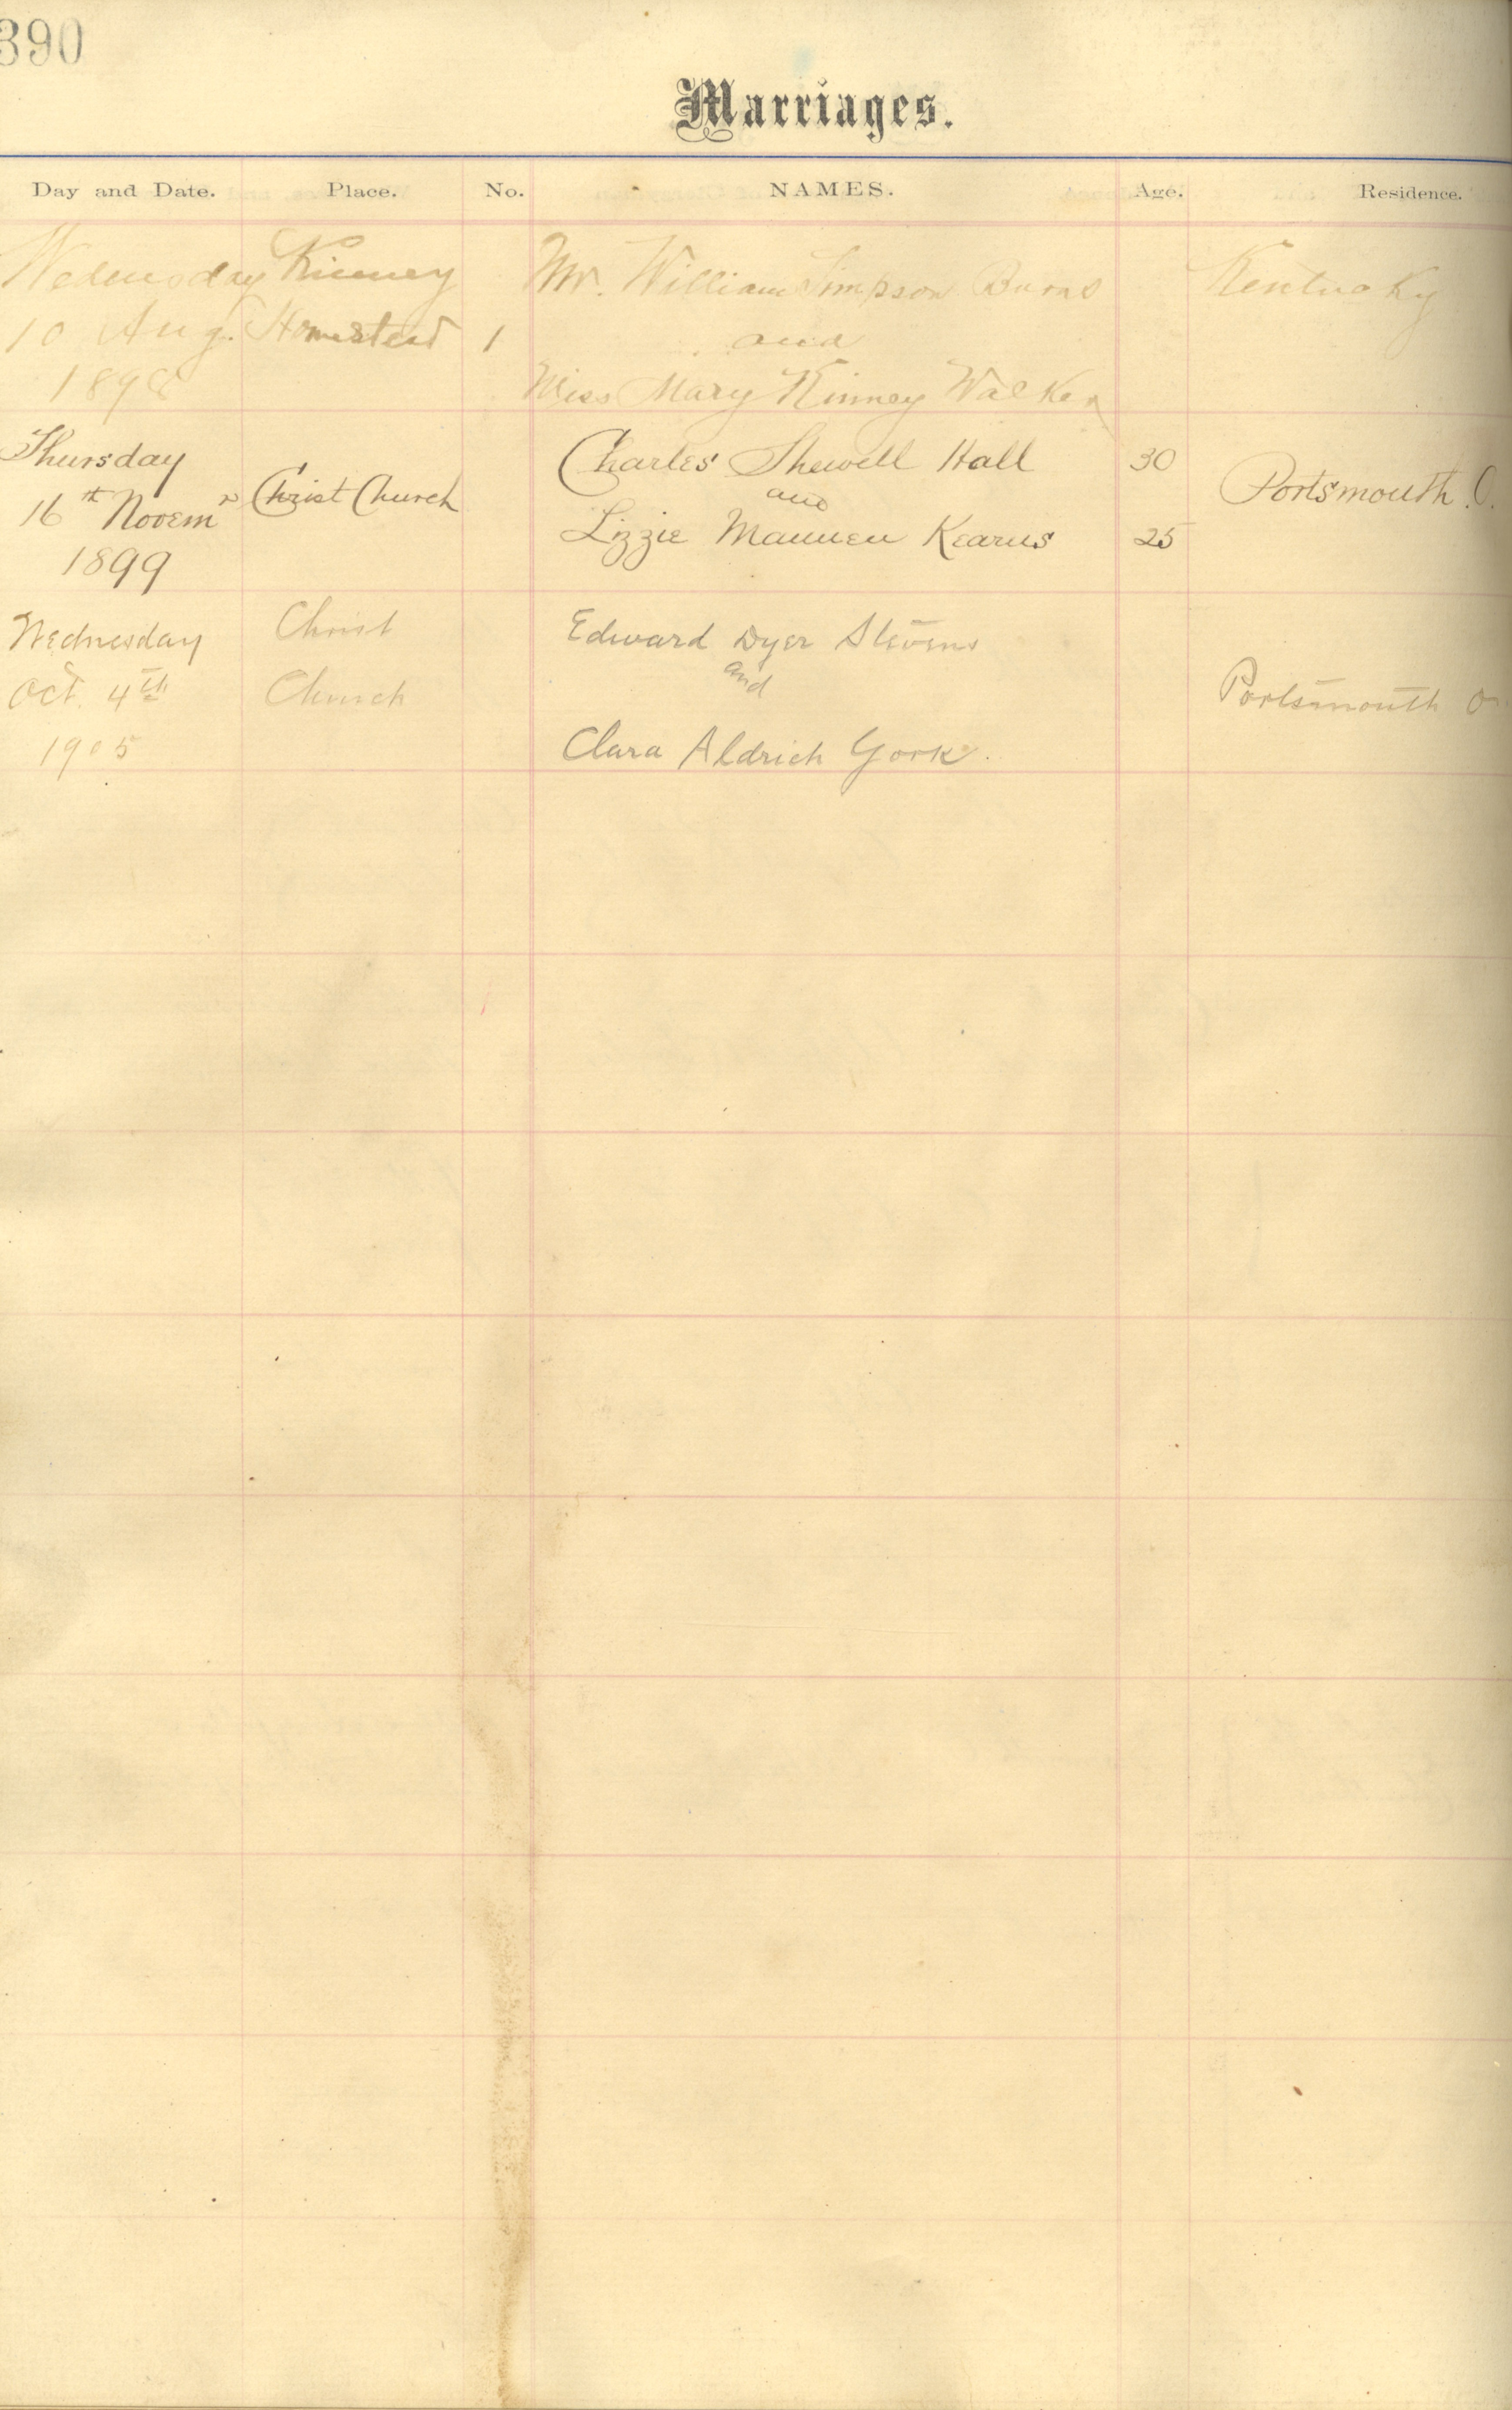 390
Marriages.
Day and Date. Place. No. NAMES. Age. Residence.
Wednesday Kinney Mr. William Simpson Burns Kentucky
10 Aug. Homestead 1 and
1898 Miss Mary Kinney Walker
Thursday Charles Shewell Hall 30
16th Novemr Christ Church and Portsmouth. O.
1899 Lizzie Mannen Kearns 25
Wednesday Christ Edward Dyer Stevens
Oct. 4th Church and Portsmouth O
1905 Clara Aldrich York.